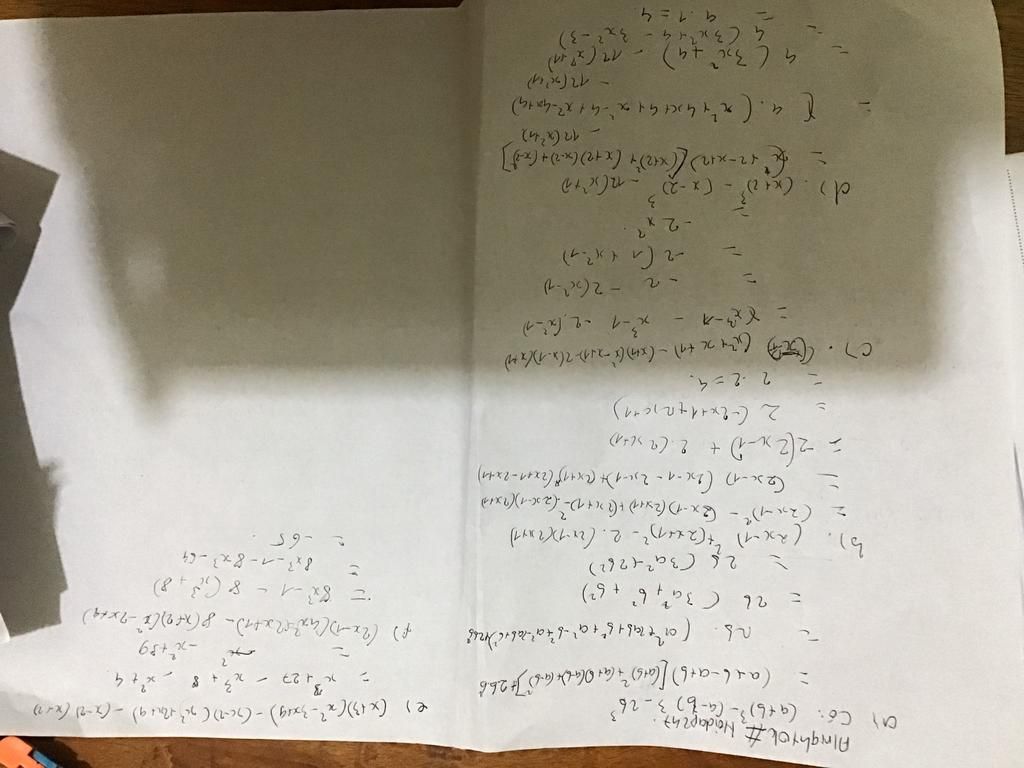 a) Có: (a+b)³ - (a-b)³ - 2b³
= (a+b-a+b)[(a+b)²+(a+b)(a-b)+(a-b)²]
= 2b. (a²+2ab+b²+a²-b²+a²-2ab+b²)
= 2b (3a²+b²+b²)
= 2b (3a²+2b²)
b). (2x-1)²+(2x+1)²-2.(2x-1)(2x+1)
= 2(2x-1) + 2.(2x+1)
= 2(-2x+1+2x+1)
= 2.2=4.
c). (x²+x+1)-(x+1)(x²-x+1)-2(x-1)(x+1)
= x³-1 - x³-1 -2.(x²-1)
= -2 -2(x²-1)
= -2(1+x²-1)
= -2x²
d). (x+2)³ - (x-2)³ - 12(x²+1)
= (x+2-x+2)[(x+2)²+(x+2)(x-2)+(x-2)²]
- 12(x²+1)
= 4.(x²+4x+4+x²-4+x²-4x+4)
- 12(x²+1)
= 4(3x²+4) - 12(x²+1)
= 4(3x²+4-3x²-3)
= 4.1=4
e) (x+3)(x²-3x+9)-(x-2)(x²+2x+4)-(x-2)(x+2)
= x³+27 - x³+8 - x²+4
= -x²+39
f) (2x-1)(4x²+2x+1)-8(x+2)(x²-2x+4)
= 8x³-1 - 8(x³+8)
= 8x³-1-8x³-64
= -65.